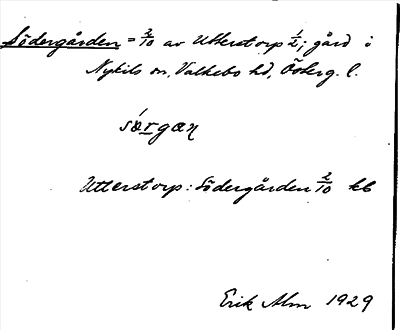 Södergården = 2/10 av Utterstorp 1/2; gård i
Nykils sn, Valkebo hd, Österg. l.
sǿrgæɳ
Utterstorp: Södergården 2/10 kb
Erik Alm 1929